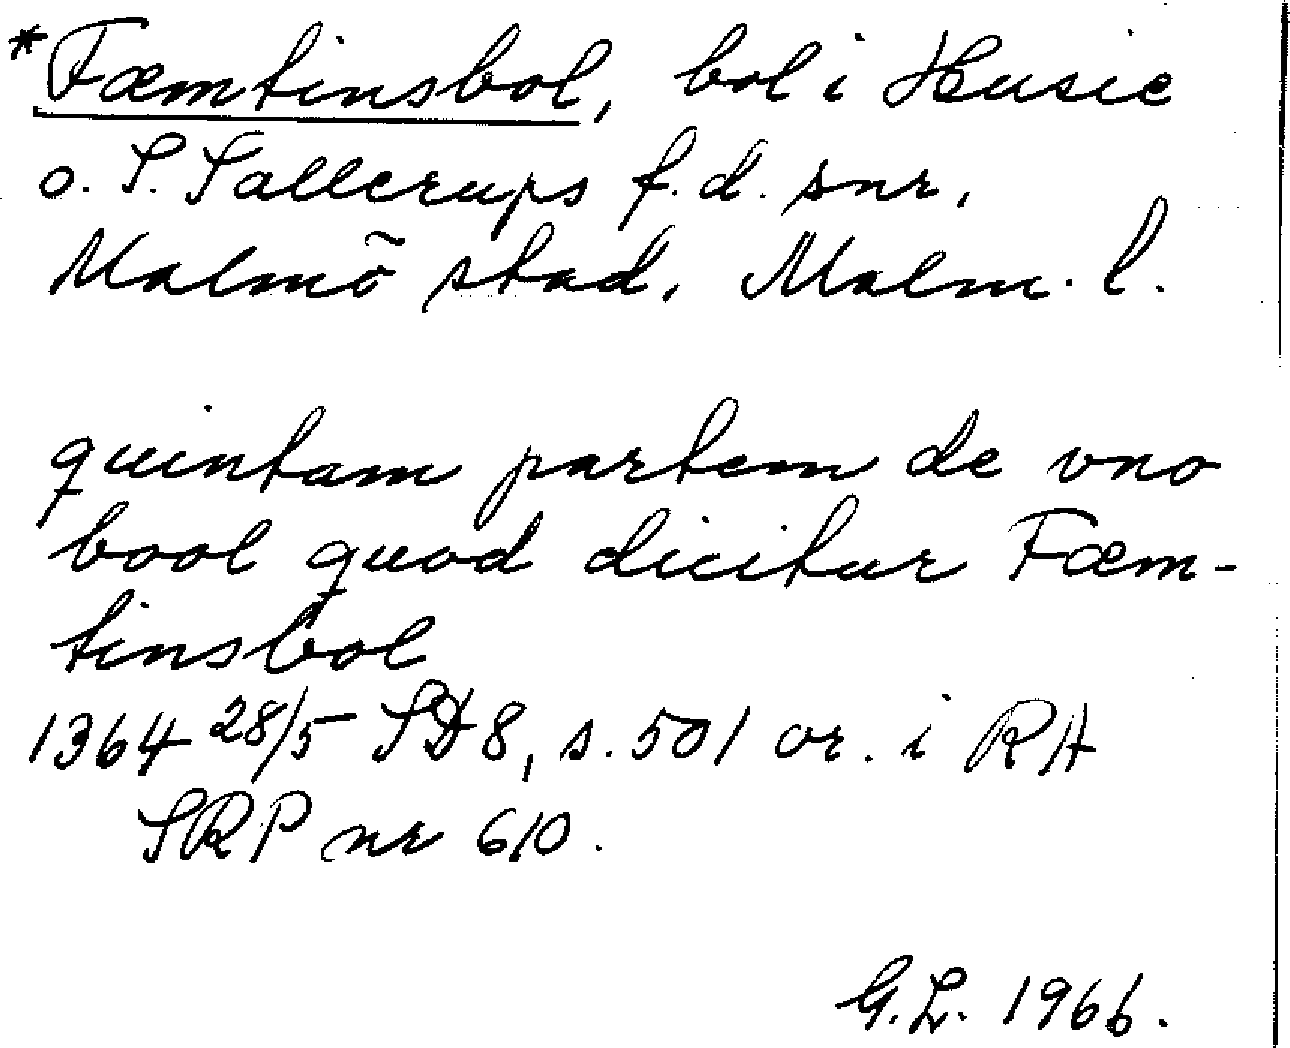 *Fæmtinsbol, bol i Husie
o. S. Sallerups f.d. snr,
Malmö stad, Malm. l.
quintam partem de vno
bool quod dicitur Fæm-
tinsbol
1364 28/5 SD 8, s. 501 or. i RA
SRP nr 610.
G.L. 1966.